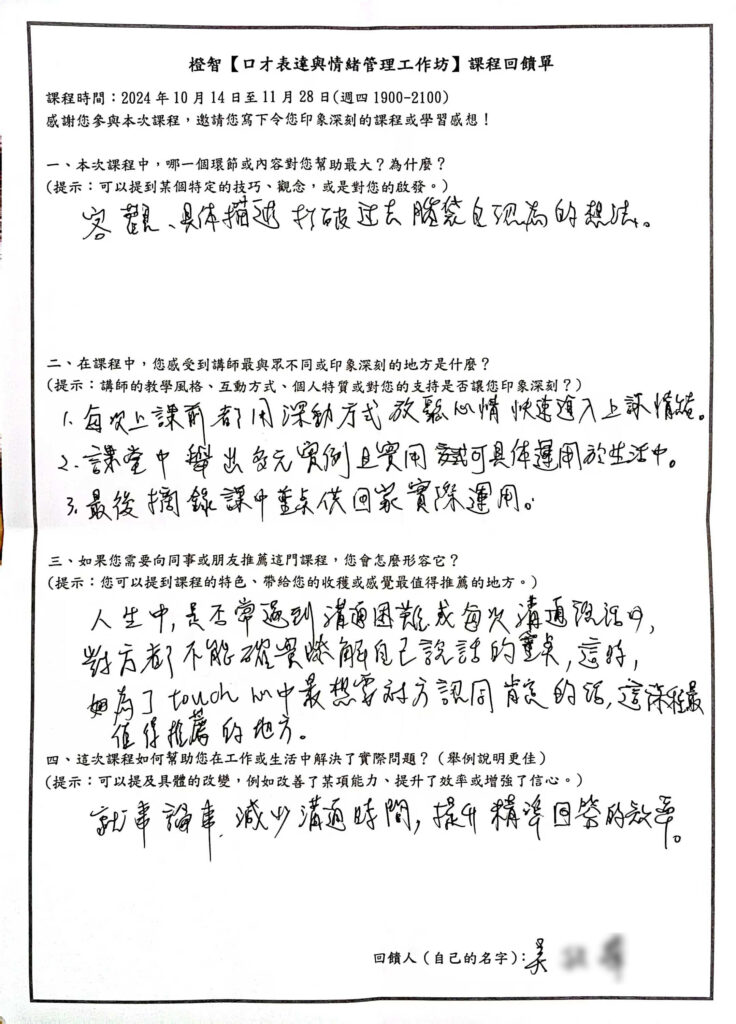 橙智【口才表達與情緒管理工作坊】課程回饋單
課程時間：2024 年 10 月 14 日至 11 月 28 日(週四 1900-2100)
感謝您參與本次課程，邀請您寫下令您印象深刻的課程或學習感想！
一、本次課程中，哪一個環節或內容對您幫助最大？為什麼？
(提示：可以提到某個特定的技巧、觀念，或是對您的啟發。)
客觀、具体描述 打破过去腦袋自認為的想法。
二、在課程中，您感受到講師最與眾不同或印象深刻的地方是什麼？
(提示：講師的教學風格、互動方式、個人特質或對您的支持是否讓您印象深刻？)
1. 每次上課前都用 動方式 放鬆心情 快速進入上課情緒。
2. 課堂中 舉出多元實例且實用 可具体運用於生活中。
3. 最後摘錄課中重点供回家實際運用。
三、如果您需要向同事或朋友推薦這門課程，您會怎麼形容它？
(提示：您可以提到課程的特色、帶給您的收穫或感覺最值得推薦的地方。)
人生中，是否常遇到溝通困難或每次溝通說話時，
對方都不能確實瞭解自己說話的重点，這時，
如為了 touch 心中最想要對方認同肯定的話，這課程最
值得推薦的地方。
四、這次課程如何幫助您在工作或生活中解決了實際問題？(舉例說明更佳)
(提示：可以提及具體的改變，例如改善了某項能力、提升了效率或增強了信心。)
就事論事，減少溝通時間，提升精準回答的效率。
回饋人（自己的名字）：吳